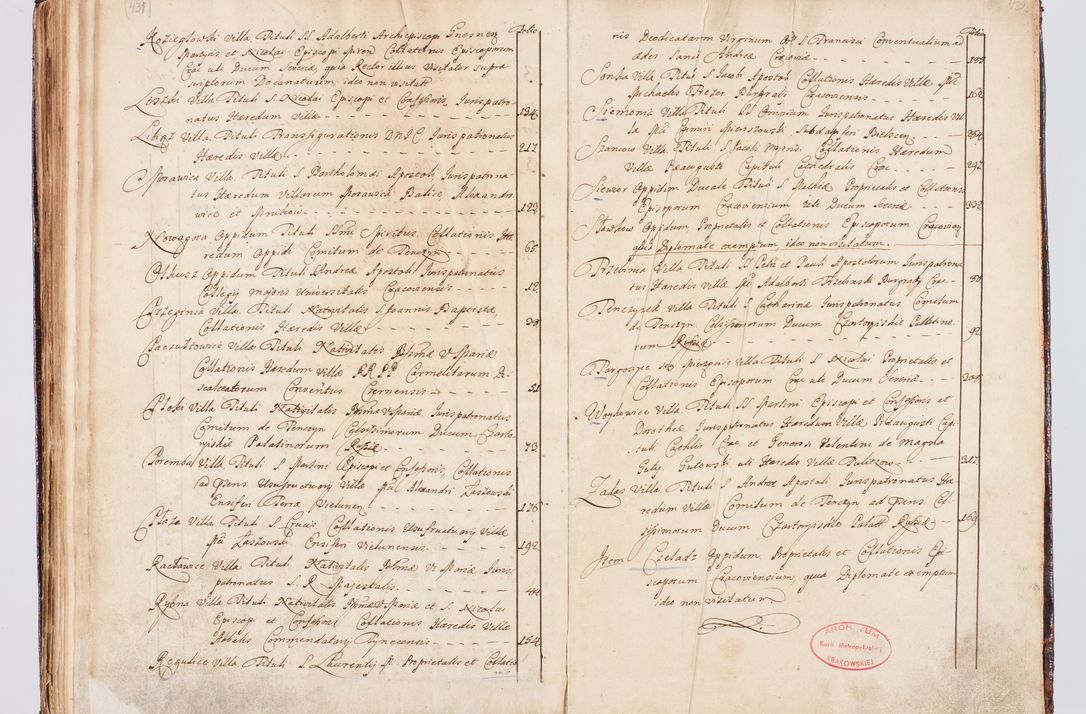 431
Folio
Koziegłowski Villa Tituli SS Adalberti Archiepiscopi Gnesnen
Martyris et Nicolai Episcopi Miren Collationis Episcoporum
Crac uti Ducum Severiæ, quia Rector illius Visitator supra
scriptorum Decanatuum, ideo non visitatt
Villa Tituli S. Nicolai Episcopi et Confessoris, Jurispatro-
natus Hæredum Villæ 134
Libąz Villa Tituli Transfigurationis DNJC Jurispatronatus
Hæredis Villæ 217
Morawica Villa Tituli S Bartholomæi Apostoli Jurispatrona-
tus Hæredum Villarum Morawica Balice, Alexandro-
wice et Mnikow 123
Nowagora Oppidum Tituli Sptus Collationis Hæ-
redum Oppidi Comitum de Tenczyn 65
Olkusz Oppidum Tituli S Andreæ Apostoli Jurispatronatus
Collegij majoris Universitatis Cracoviensis 12
Przeginia Villa Tituli Nativitatis S Joannis Baptistæ
Collationis Hæredis Villæ 38
Paczułtowice Villa Tituli Nativitatis Mariæ
Collationis Hæredum Villæ RR PP Carmelitarum Di-
scalceatorum Conventus Czernensis 51
Płoki Villa Tituli Nativitatis Mariæ Jurispatronatus
Comitum de Tenczyn Celsissimorum Ducum Czarto-
ryiskie Palatinorum Russiæ 73
Poremba Villa Tituli S Martini Episcopi et Confessoris, Collationis
ad præsens Usufructuarij Villæ Alexandri Laszowski
Ensiferi Terræ Vielunen 176
Płaza Villa Tituli S Crucis Collationis Usufructuarij Villæ
Laszowski Ensiferi Vielunensis 192
Racławice Villa Tituli Nativitatis Mariæ Juris-
patronatus S. R. Majestatis 44
Rybna Villa Tituli Nativitatis Mariæ et S. Nicolai
Episcopi et Confessoris Collationis Hæredis Villæ
Abbatis Commendatarij Tynecensis 154
Regulice Villa Tituli S Laurentij M. Proprietatis et Collatio
nis
Folio
nis Dedicatarum Virginum Ord S Francisci Conventualium ad
ædes Sancti Andreæ Cracoviæ
Sanka Villa Tituli S Jacobi Apostoli Collationis Hæredis Villæ
Michaelis Trezer Burgrabi Cracoviensis 162
Siemonia Villa Tituli SS Omnium Jurispatronatus Hæredis Vil
læ Mieroszowski Subdapiferi
Villa Tituli S Jacobi Majoris Collationis Hæredum
Villæ Præaugusti Capituli Cathedralis Crac 297
Siewior Oppidum Ducale Tituli S Mathiæ Proprietatis et Collationis
Episcoporum Cracoviensium uti Ducum Severiæ 332
Sławkow Oppidum Proprietatis et Collationis Episcoporum Cracovien
quia Diplomate exemptum, ideo non visitatum
Trzebinia Villa Tituli SS Petri et Pauli Apostolorum Jurispatrona
tus Hæredis Villæ Adalberti Trzebinski Burgraby Crac
Tenczynek Villa Tituli S Catharinæ Jurispatronatus Comitum
de Tenczyn Celsissimorum Ducum Czartoryiskie Palatino
rum Russiæ 92
Targoszyce seu Mierzęcice Villa Tituli S Nicolai Proprietatis et
Collationis Episcoporum Crac uti Ducum Severiæ
Woykowice Villa Tituli SS Martini Episcopi et Confessoris et
Dorotheæ Jurispatronatus Hæredum Villæ Præaugusti Capi
tuli Cathlis Crac et Generosi Valentini de Magna
Guly Gulowski uti Hæredis Villæ 317
Zadas Villa Tituli S Andreæ Apostoli Jurispatronatus Hæ
redum Villæ Comitum de Tenczyn ad præsens Cel
sissimorum Ducum Czartoryiskich Palatt Russiæ 169
Item Czeladz Oppidum Proprietatis et Collationis Epi-
scoporum Cracoviensium, quia Diplomate exemptum
ideo non visitatur.
ARCHIWUM
Kurii Metropolitalnej
KRAKOWSKIEJ